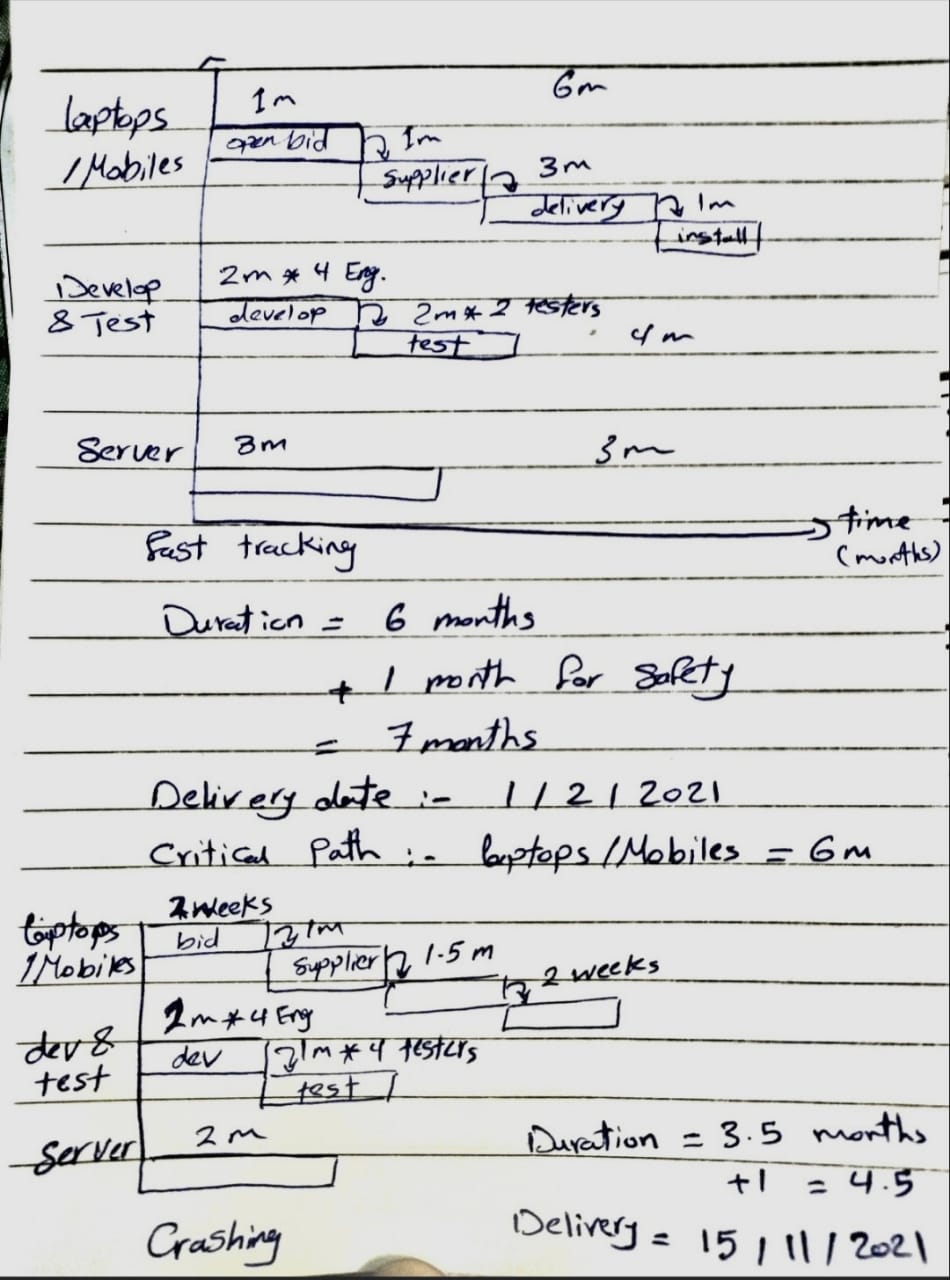 1m 6m
laptops
/Mobiles
open bid 1m
supplier 3m
delivery 1m
install
Develop
& Test
2m * 4 Eng.
develop 2m * 2 testers
test 4m
Server 3m 3m
time
(months)
fast tracking
Duration = 6 months
+ 1 month for safety
= 7 months
Delivery date :- 1 / 2 / 2021
Critical Path :- laptops/Mobiles = 6m
2 weeks
laptops
/Mobiles
bid 1m
supplier 1.5 m
2 weeks
dev &
test
2m * 4 Eng
dev 1m * 4 testers
test
Server 2m
Duration = 3.5 months
+1 = 4.5
Crashing
Delivery = 15 / 11 / 2021